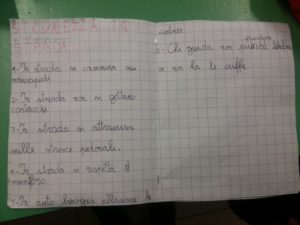 SICUREZZA IN
STRADA
1-In strada si cammina sui
marciapiedi
2-In strada non si gettano
cartacce
3-In strada si attraversa
sulle strisce pedonali.
4-In strada si rispetta il
semaforo.
5-In auto bisogna allacciare le
cinture.
6-Chi guida non
e non ha le cuffie